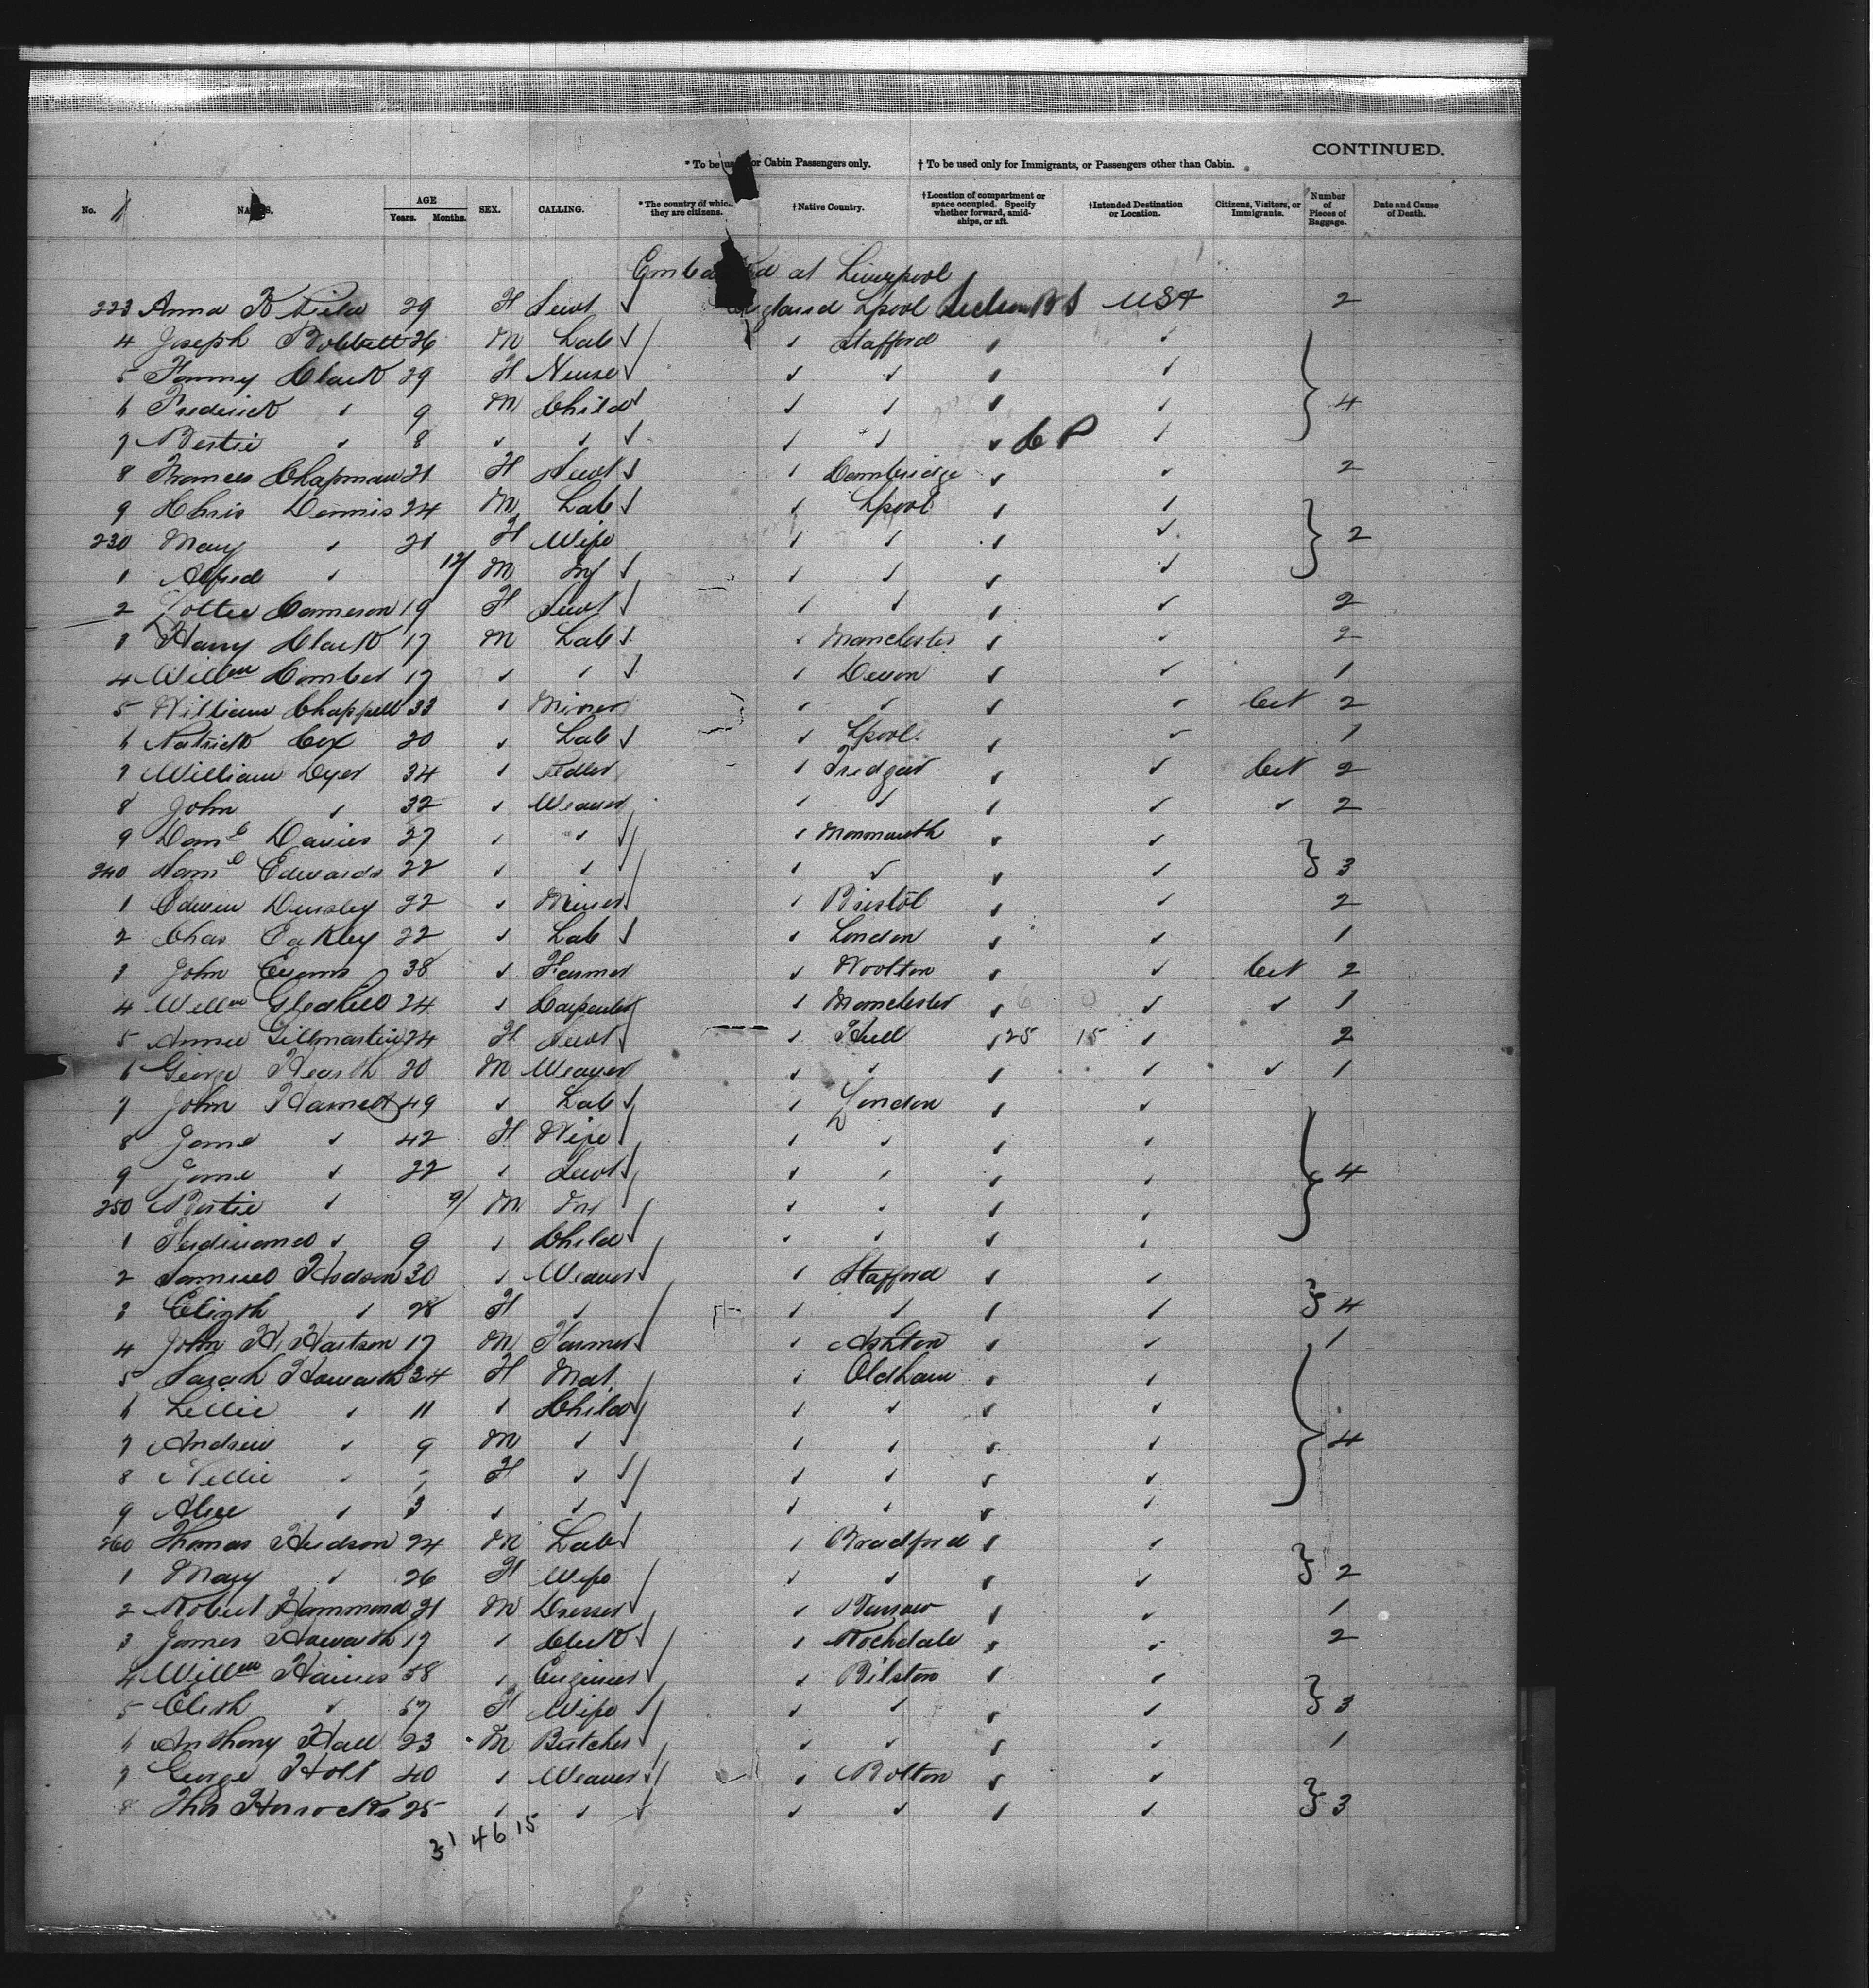 CONTINUED.
* To be us or Cabin Passengers only. † To be used only for Immigrants, or Passengers other than Cabin.
No. NA S. AGE Years. Months. SEX. CALLING. * The country of whic they are citizens. † Native Country. † Location of compartment or space occupied. Specify whether forward, amidships, or aft. † Intended Destination or Location. Citizens, Visitors, or Immigrants. Number of Pieces of Baggage. Date and Cause of Death.
Emba d at Liverpool
223 Anna 29 F Servt gland Lpool USA 2
4 Joseph 26 M Lab ✓ Stafford ✓ ✓
5 Fanny Clark 29 F Nurse ✓ ✓ ✓ ✓
6 Frederick ✓ 9 M Child ✓ ✓ ✓ ✓ 4
7 Bertie ✓ 8 ✓ ✓ ✓ ✓ ✓ C P ✓
8 Frances Chapman 21 F Servt ✓ Cambridge ✓ ✓ 2
9 Chris Dennis 24 M Lab ✓ Lpool ✓ ✓
230 Mary ✓ 21 F Wife ✓ ✓ ✓ ✓ 2
1 Alfred ✓ 12/ M Inf ✓ ✓ ✓ ✓
2 Lottie Cameron 19 F Servt ✓ ✓ ✓ ✓ 2
3 Harry Clark 17 M Lab ✓ Manchester ✓ ✓ 2
4 Willm Comber 17 ✓ ✓ ✓ Devon ✓ ✓ 1
5 William Chappell 33 ✓ Miner ✓ ✓ ✓ ✓ Cit 2
6 Patrick Cox 20 ✓ Lab ✓ Lpool ✓ ✓ 1
7 William Dyer 34 ✓ ✓ Tredgar ✓ ✓ Cit 2
8 John ✓ 32 ✓ Weaver ✓ ✓ ✓ ✓ ✓ 2
9 Davies 27 ✓ ✓ ✓ Monmouth ✓ ✓
240 Edwards 22 ✓ ✓ ✓ ✓ ✓ ✓ 3
1 Edwin Dursley 22 ✓ Miner ✓ Bristol ✓ ✓ 2
2 Chas Oakley 22 ✓ Lab ✓ London ✓ ✓ 1
3 John Evans 38 ✓ Farmer ✓ Woolton ✓ ✓ Cit 2
4 Willm Gledhill 24 ✓ Carpenter ✓ Manchester ✓ ✓ ✓ 1
5 Annie Gillmartin 24 F Servt ✓ Hull ✓ 25 15 ✓ 2
6 George Hearth 20 M Weaver ✓ ✓ ✓ ✓ ✓ 1
7 John 49 ✓ Lab ✓ London ✓ ✓
8 Jane ✓ 42 F Wife ✓ ✓ ✓ ✓
9 Jane ✓ 22 ✓ Servt ✓ ✓ ✓ ✓ 4
250 Bertie ✓ 9/ M Inf ✓ ✓ ✓ ✓
1 Ferdinand ✓ 9 ✓ Child ✓ ✓ ✓ ✓
2 Samuel Hodson 30 ✓ Weaver ✓ Stafford ✓ ✓
3 Elizth ✓ 28 F ✓ ✓ ✓ ✓ ✓ 4
4 John H. Hartson 17 M Farmer ✓ Ashton ✓ ✓ 1
5 Sarah Howarth 34 F Mat. ✓ Oldham ✓ ✓
6 Lillie ✓ 11 ✓ Child ✓ ✓ ✓ ✓
7 Andrew ✓ 9 M ✓ ✓ ✓ ✓ ✓ 4
8 Nellie ✓ F ✓ ✓ ✓ ✓ ✓
9 Alice ✓ 3 ✓ ✓ ✓ ✓ ✓ ✓
260 Thomas Hudson 24 M Lab ✓ Bradford ✓ ✓
1 Mary ✓ 26 F Wife ✓ ✓ ✓ ✓ 2
2 Robert Hammond 21 M Dresser ✓ ✓ ✓ 1
3 James Howarth 17 ✓ Clerk ✓ Rochdale ✓ ✓ 2
4 Willm Haines 58 ✓ Engineer ✓ Bilston ✓ ✓
5 ✓ 57 F Wife ✓ ✓ ✓ ✓ 3
6 Anthony Hall 23 M Butcher ✓ ✓ ✓ ✓ 1
7 George Holt 40 ✓ Weaver ✓ Bolton ✓ ✓
8 Thos Horrocks 25 ✓ ✓ ✓ ✓ ✓ ✓ 3
31 46 15